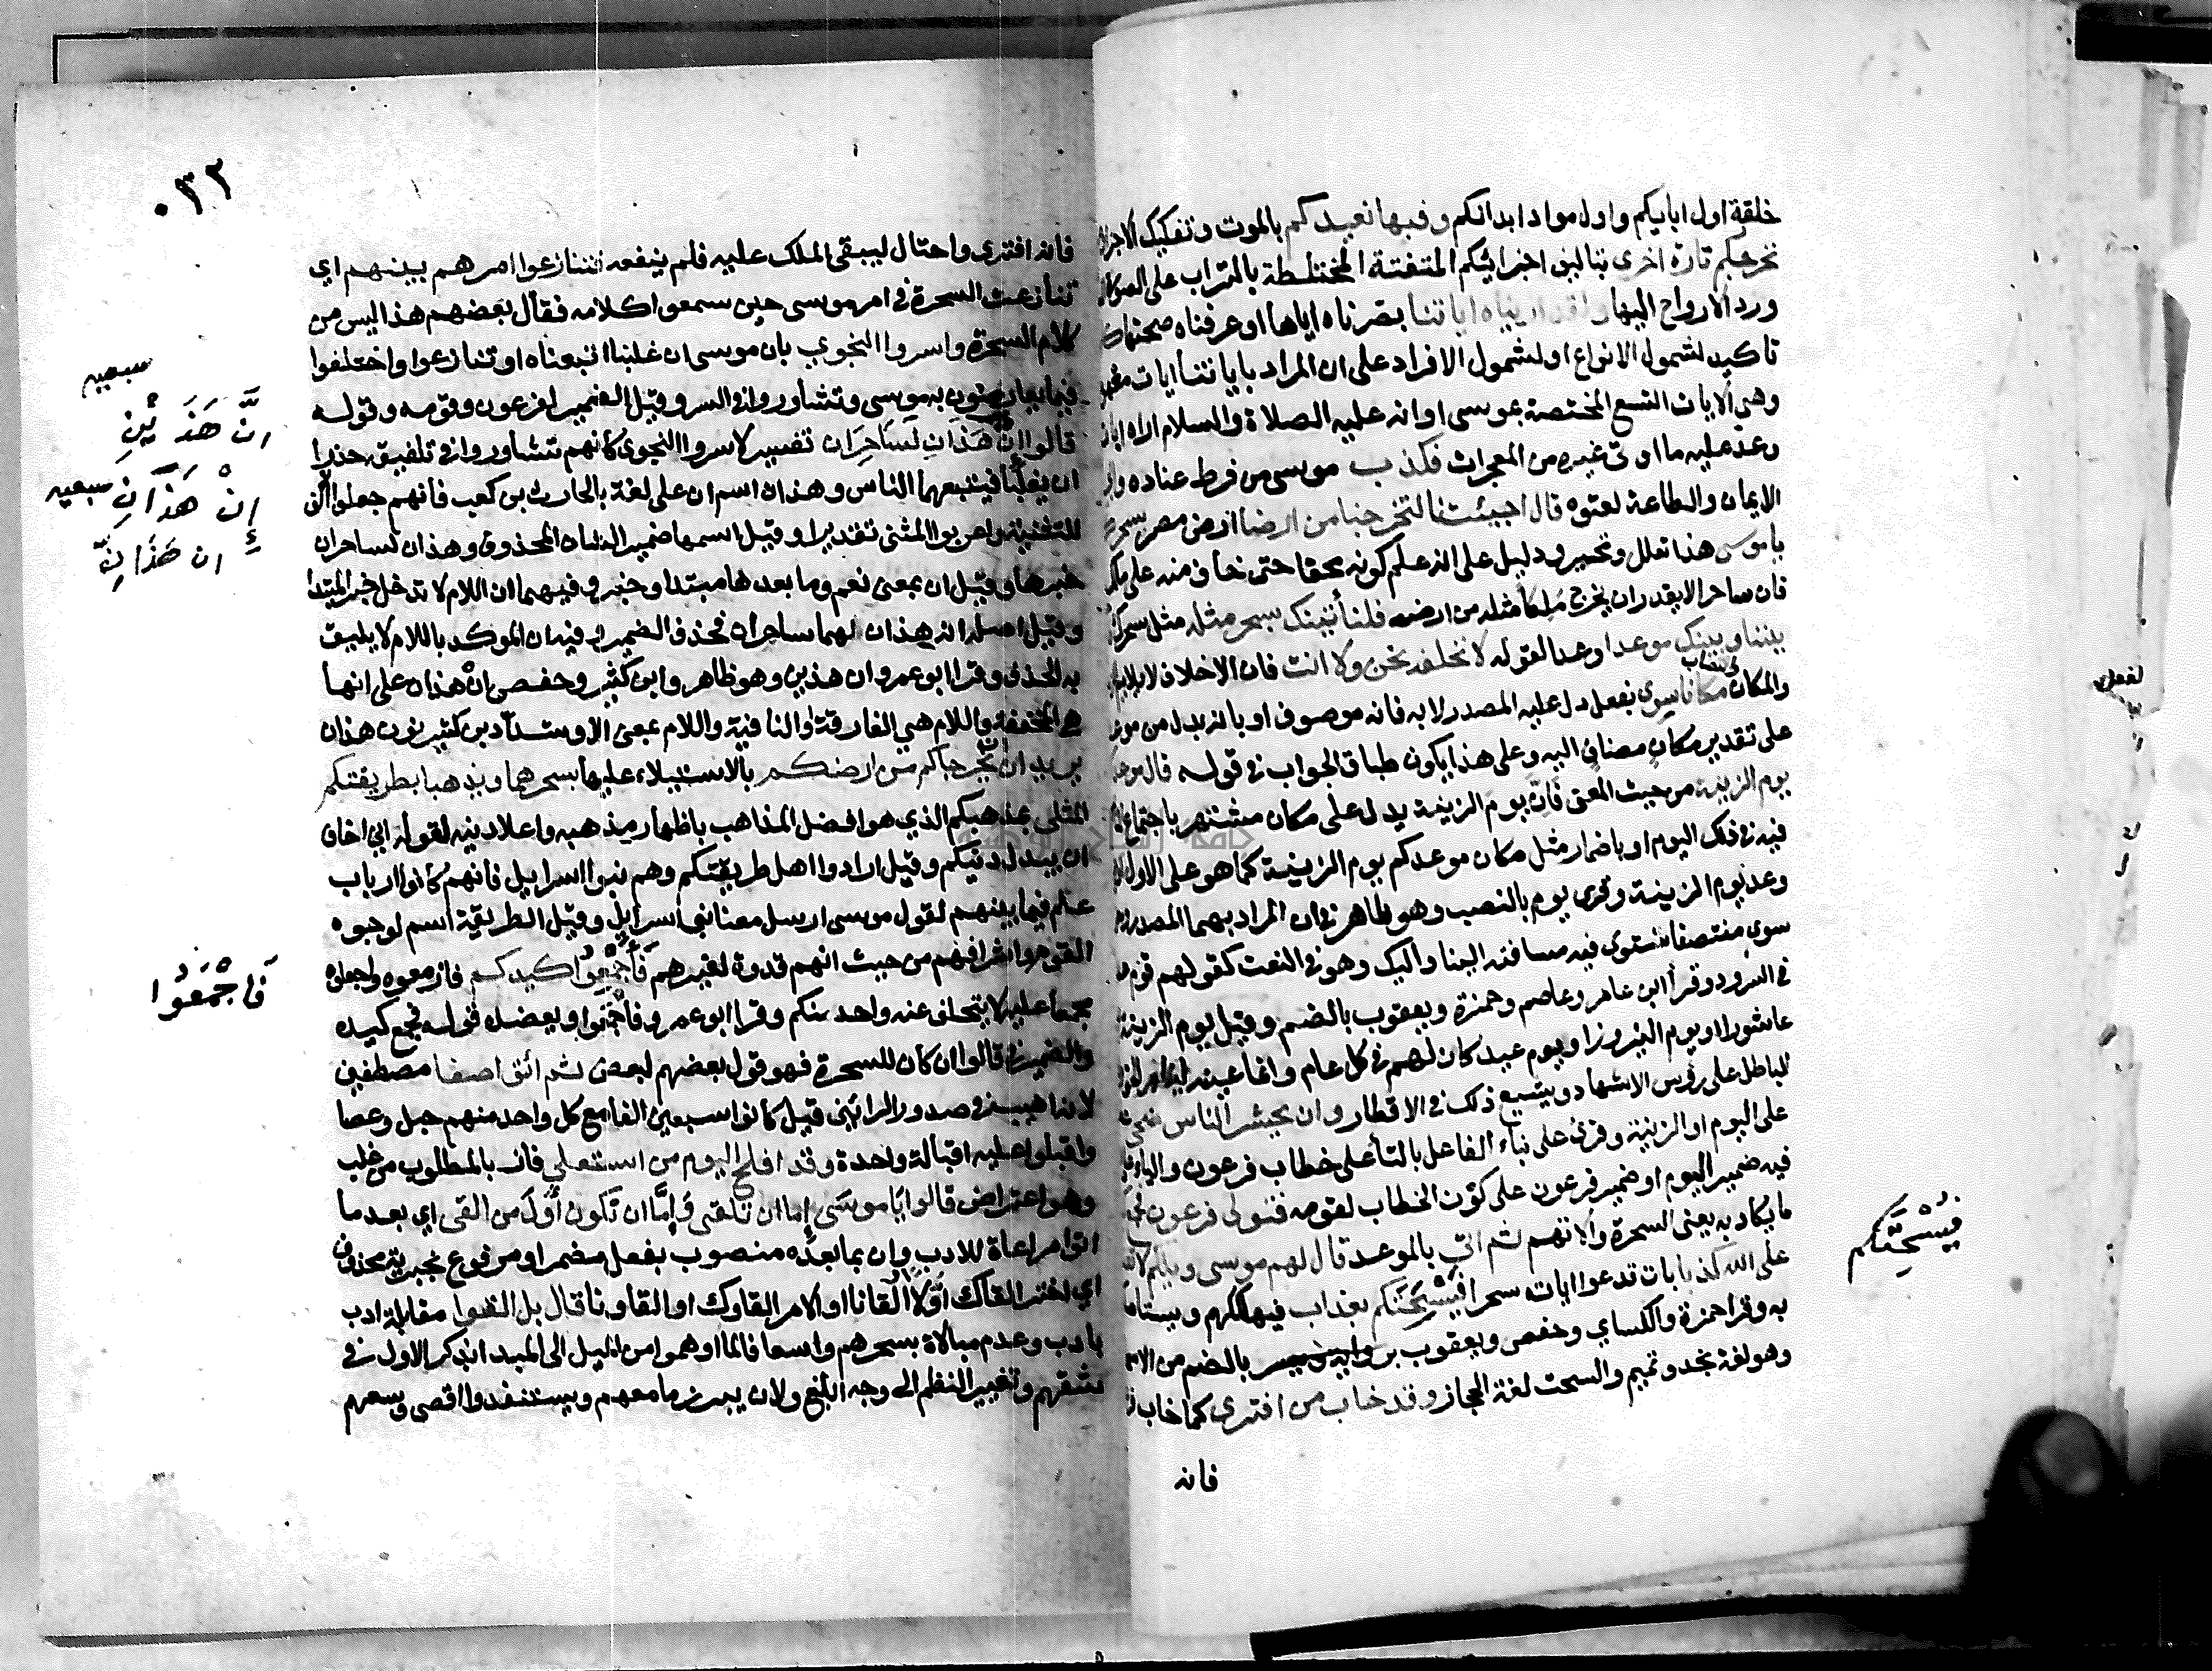 خلقة اول ابايكم واول مواد ابدانكم وفيها نعيدكم بالموت وتفكيك الاجزاء
نخرجكم تارة اخرى بتاليف اجزائكم المتفتتة المختلطة بالتراب على الصو
ورد الارواح اليها ولقد اريناه اياتنا بصرناه اياها او عرفناه صحتها
تاكيد لشمول الانواع او لشمول الافراد على ان المراد باياتنا ايات
وهي الايات التسع المختصة بموسى او انه عليه الصلاة والسلام اراه
وعد عليه ما اوتى غيره من المعجزات فكذب موسى من فرط عناده
الايمان والطاعة لعتوه قال اجيئتنا لتخرجنا من ارضنا ارض مصر بسحرك
ياموسى هذا تعلل وتحير ودليل على انه علم كونه محقا حتى خاف منه على
فان ساحرا لا يقدر ان يخرج ملكا مثله من ارضه فلنأتينك بسحر مثله مثل سحرك
بيننا وبينك موعدا وعدا لقوله لا نخلفه نحن ولا انت فان الاخلاف لا يلايم
والمكان مكانا سوى بفعل دل عليه المصدر لا به فانه موصوف او بانه بدل من
على تقدير مكان مضاف اليه وعلى هذا يكون طباق الجواب في قوله قال
يوم الزينة من حيث المعنى فان يوم الزينة يدل على مكان مشتهر باجتماع
فيه في ذلك اليوم او باضمار مثل مكان موعدكم يوم الزينة كما هو على الاول
وعد يوم الزينة وقرى يوم بالنصب وهو ظاهر في ان المراد بهما المصدر
سوى منتصفا تستوي فيه مسافته الينا واليك وهو في النعت كقولهم قوم
في الشذوذ وقرأ ابن عامر وعاصم وحمزة ويعقوب بالضم وقيل يوم الزينة
عاشورا او يوم النيروز او يوم عيد كان لهم في كل عام وانما عينه ليظهر
الباطل على رؤس الاشهاد ويشيع ذلك في الاقطار وان يحشر الناس ضحى
على اليوم او الزينة وقرى على بناء الفاعل بالتا على خطاب فرعون والياء
فيه ضمير اليوم او ضمير فرعون على كون الخطاب لقومه فتولى فرعون
مايكاد به يعني السحرة والاتهم ثم اتى بالموعد قال لهم موسى ويلكم لا
على الله كذبا بان تدعوا اياته سحرا فيسحتكم بعذاب فيهلككم ويستا
به وقرا حمزة والكساي وحفص ويعقوب بالضم من
وهو لغة نجد وتميم والسحت لغة الحجاز وقد خاب من افترى كما خاب
فيسحتكم
فانه
٠٣٢
فانه افترى واحتال ليبقى الملك عليه فلم ينفعه فتنازعوا امرهم بينهم اي
تنازعت السحرة في امر موسى حين سمعوا كلامه فقال بعضهم هذا ليس من
كلام السحرة واسروا النجوى بان موسى ان غلبنا اتبعناه او تنازعوا واختلفوا
فيما يعارضون به موسى وتشاوروا في السر وقيل الضمير لفرعون وقومه وقوله
قالوا إن هَذَانِ لَسَاحِرَان تفسير لاسروا النجوى كانهم تشاوروا في تلفيقه حذرا
ان يغلبا فيتبعهما الناس وهذان اسم ان على لغة بالحارث بن كعب فانهم جعلوا الالف
للتثنية واعربوا المثنى تقديرا وقيل اسمها ضمير الشان المحذوف وهذان لساحران
خبرها وقيل ان بمعنى نعم وما بعدها مبتدا وخبر وفيهما ان اللام لا تدخل خبر المبتدا
وقيل اصله انه هذان لهما ساحران فحذف الضمير وفيه ان الموكد باللام لا يليق
به الحذف وقرا ابو عمرو ان هذين وهو ظاهر وابن كثير وحفص انْ هذان على انها
هي المخففة واللام هي الفارقة او النافية واللام بمعنى الا وشدد ابن كثير نون هذان
يريدان ان يخرجاكم من ارضكم بالاستيلاء عليها بسحرهما ويذهبا بطريقتكم
المثلى بمذهبكم الذي هو افضل المذاهب باظهار مذهبه واعلا دينه لقوله اني اخاف
ان يبدل دينكم وقيل ارادوا اهل طريقتكم وهم بنوا اسرايل فانهم كانوا ارباب
علم فيما بينهم لقول موسى ارسل معنا بني اسرايل وقيل الطريقة اسم لوجوه
القوم واشرافهم من حيث انهم قدوة لغيرهم فَأَجْمِعُوا كيدكم فازمعوه واجعلوه
مجمعا عليه لا يتخلف عنه واحد منكم وقرا ابو عمرو فاجمعوا ويعضده قوله فجمع كيده
والضمير في قالوا ان كان للسحرة فهو قول بعضهم لبعض ثم ائتوا صفا مصطفين
لانه اهيب في صدور الرائين قيل كانوا سبعين الفا مع كل واحد منهم حبل وعصا
واقبلوا عليه اقبالة واحدة وقد افلح اليوم من استعلى فاز بالمطلوب من غلب
وهو اعتراض قالوا يَا موسَى إما ان تلقى وَإِمَّا ان نَكون أَوَّلَ من القى اي بعد ما
اتوا مراعاة للادب وان بما بعده منصوب بفعل مضمر او مرفوع بخبرية محذوف
اي اختر القاك اَوّلا او القانا او الامر القاوك او القاونا قال بل القوا مقابلة ادب
بادب وعدم مبالاة بسحرهم واسعافا لما اوهموا من الميل الى المبد ابذكر الاول في
شقهم وتغيير النظم الى وجه ابلغ ولان يبرزوا ما معهم ويستنفدوا اقصى وسعهم
سبعيه
انَّ هَذَيْنِ
إِنْ هَذَانِ سبعيه
ان هَذَانِّ
فَاجْمَعُوا